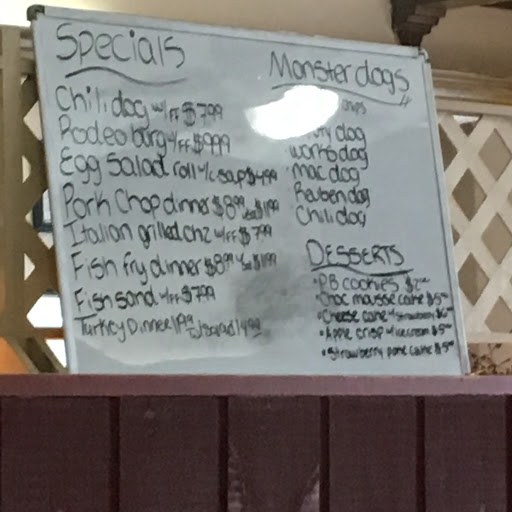 Specials
Chili dog w/FF $7.99
Rodeo burg w/FF $9.99
Egg Salad roll w/c $4.99
Pork Chop dinner $8.99
Italian grilled chz w/FF $7.99
Fish fry dinner $8.99
Fish sand w/FF $7.99
Turkey Dinner w/salad 14.99
Monster dogs
chips
dog
works dog
mac dog
Reuben dog
Chili dog
DESSERTS
• PB cookies $2.00
• Choc mousse cake $5.00
• Cheese cake w/ strawberry
• Apple crisp w/ice cream $5.00
• Strawberry cake $5.00